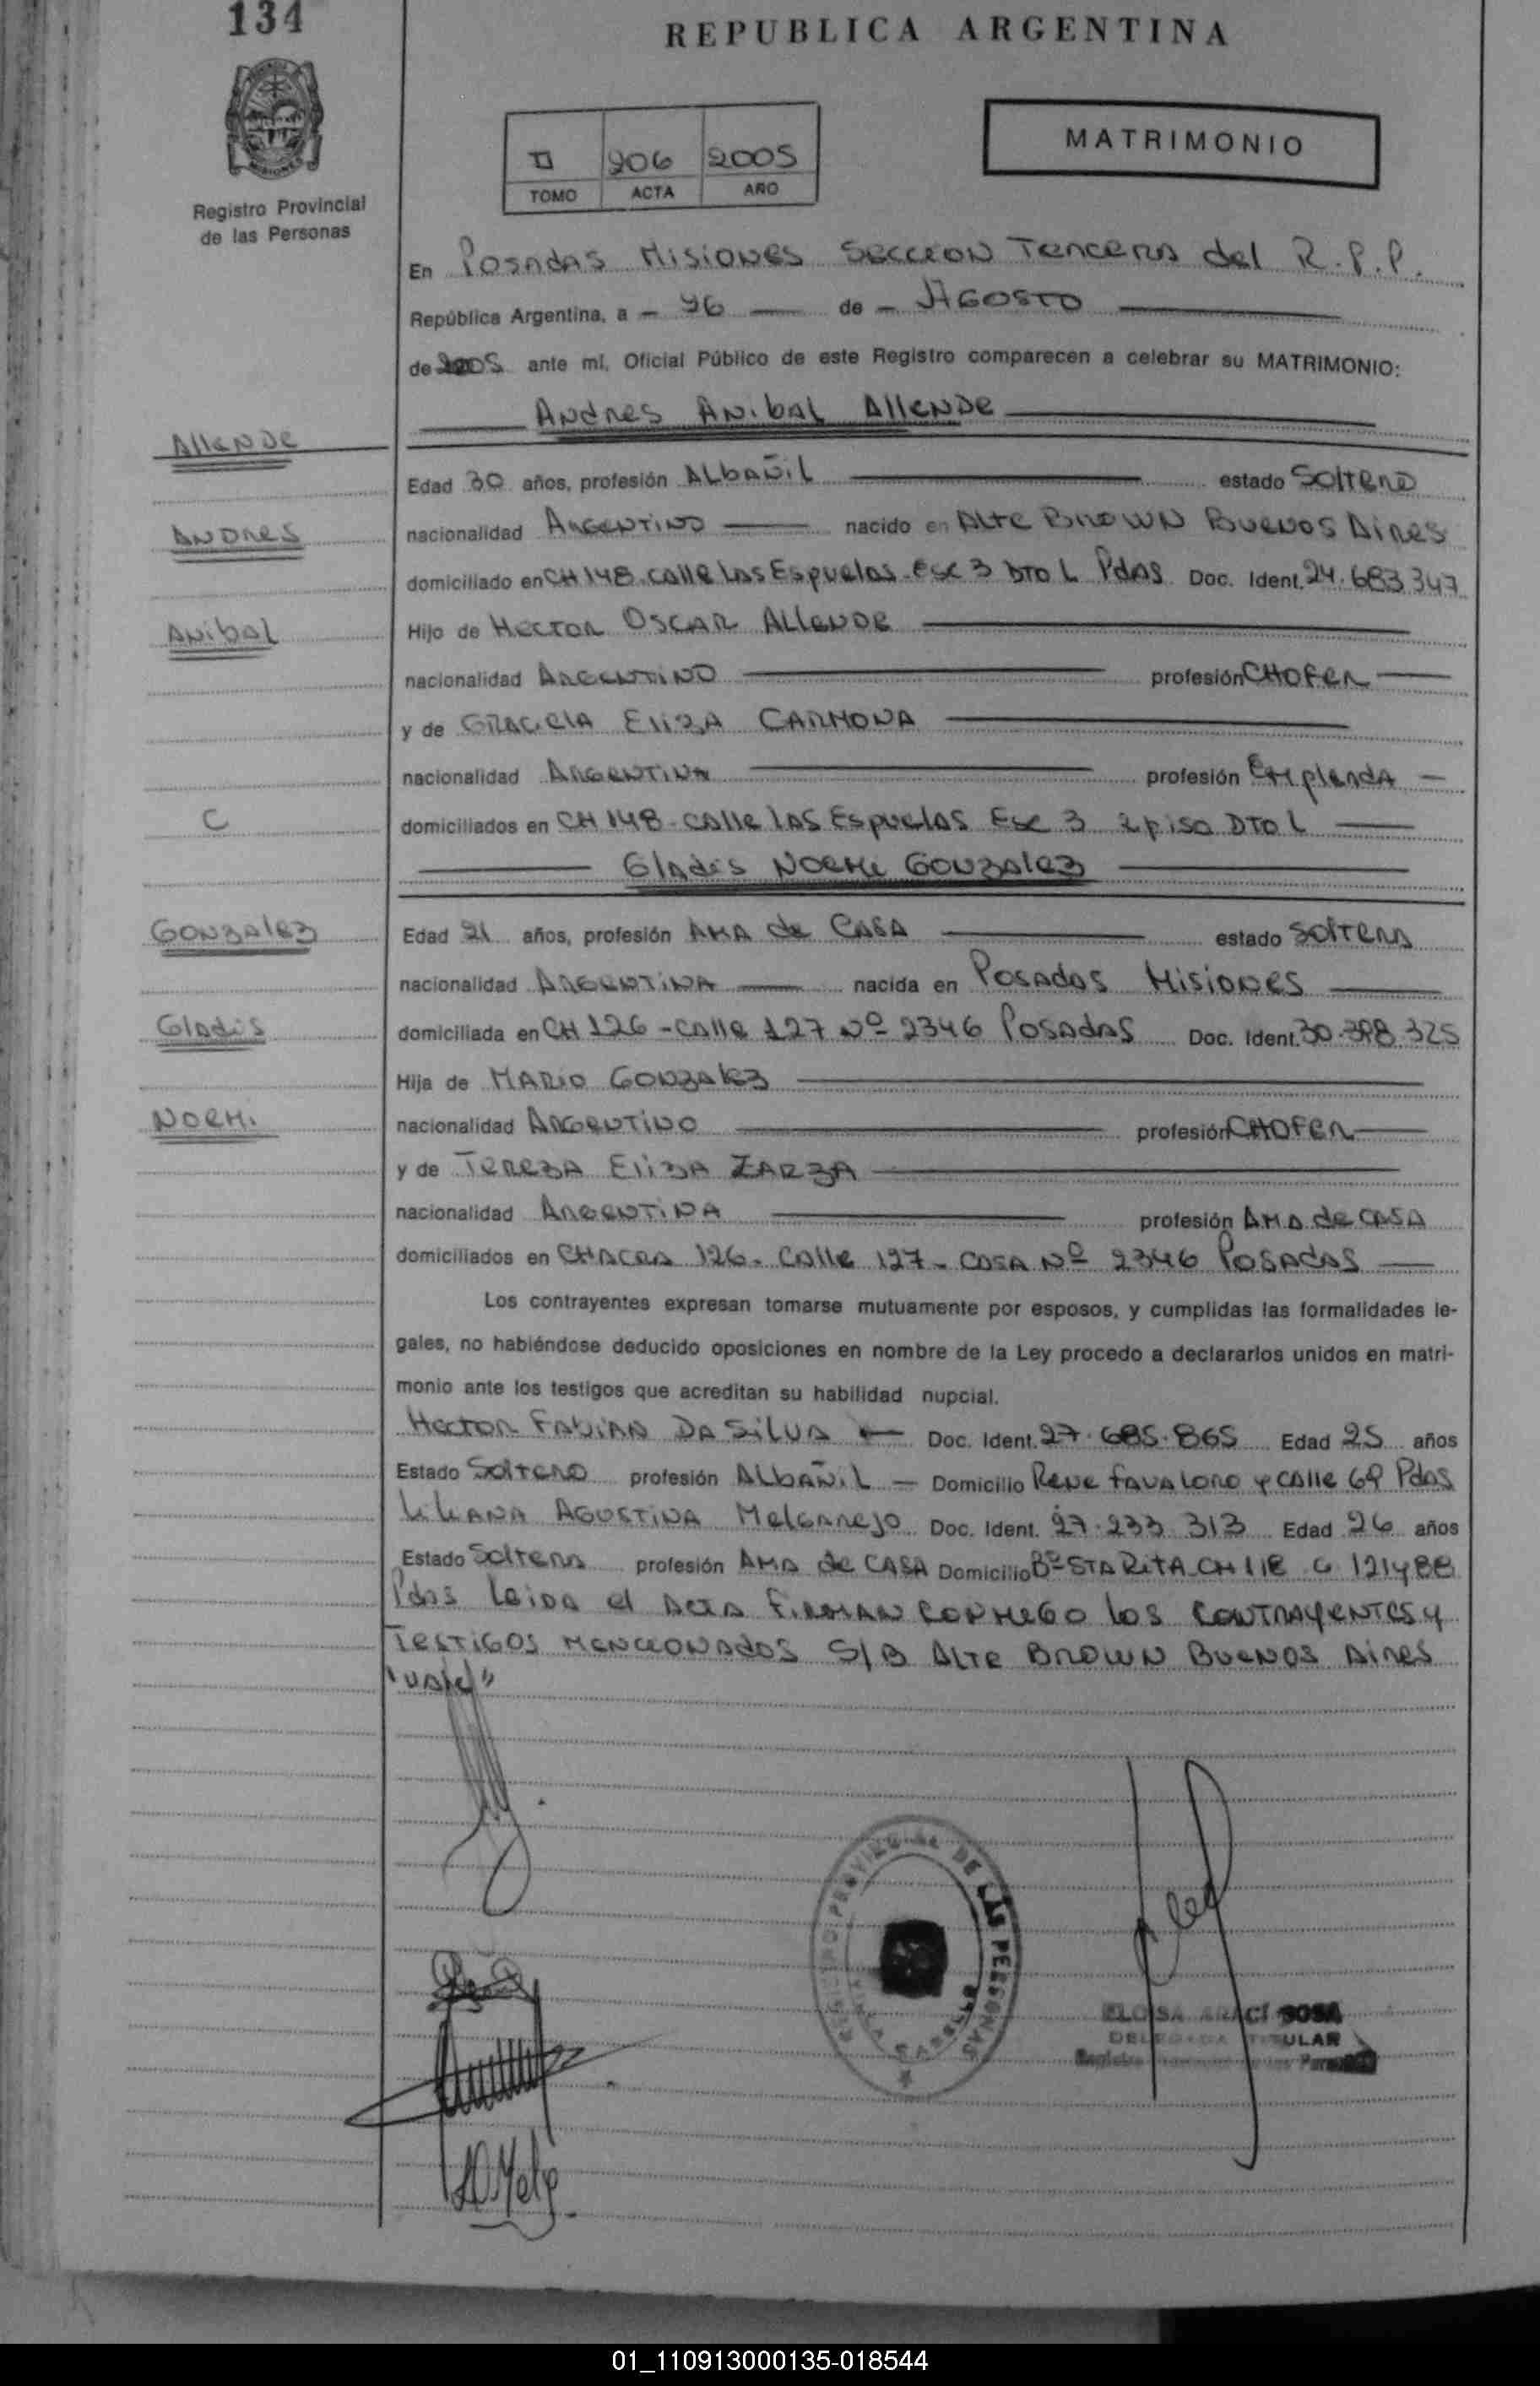 134
REPUBLICA ARGENTINA
MATRIMONIO
II 206 2005
TOMO ACTA AÑO
Registro Provincial
de las Personas
En Posadas Misiones Seccion Tercera del R.P.P.
República Argentina, a - 26 - de - Agosto
de 2005 ante mi, Oficial Público de este Registro comparecen a celebrar su MATRIMONIO:
Andres Anibal Allende
Allende
Edad 30 años, profesión Albañil estado Soltero
Andres
nacionalidad Argentino nacido en Alte Brown Buenos Aires
domiciliado en CH 148 - calle Las Espuelas - Esc 3 DTO L Pdas Doc. Ident. 24.683.347
Anibal
Hijo de Hector Oscar Allende
nacionalidad Argentino profesión Chofer
y de Graciela Eliza Carmona
nacionalidad Argentina profesión Empleada
C
domiciliados en CH 148 - calle las Espuelas Esc 3 2 piso DTO L
Glades Noemi Gonzalez
Gonzalez
Edad 21 años, profesión Ama de Casa estado Soltera
nacionalidad Argentina nacida en Posadas Misiones
Glades
domiciliada en CH 126 - calle 127 Nº 2346 Posadas Doc. Ident. 30.398.325
Hija de Mario Gonzalez
Noemi
nacionalidad Argentino profesión Chofer
y de Tereza Eliza Zarza
nacionalidad Argentina profesión Ama de casa
domiciliados en Chacra 126 - Calle 127 - casa Nº 2346 Posadas
Los contrayentes expresan tomarse mutuamente por esposos, y cumplidas las formalidades le-
gales, no habiéndose deducido oposiciones en nombre de la Ley procedo a declararlos unidos en matri-
monio ante los testigos que acreditan su habilidad nupcial.
Hector Fabian Da Silva Doc. Ident. 27.685.865 Edad 25 años
Estado Soltero profesión Albañil - Domicilio Rene Favaloro y calle 69 Pdas
Liliana Agustina Melgarejo Doc. Ident. 27.233.313 Edad 26 años
Estado Soltera profesión Ama de Casa Domicilio Bº Sta Rita CH 118 C 121488
Pdas Leida el acta firman conmigo los contrayentes y
Testigos mencionados S/B Alte Brown Buenos Aires
"Vale"
REGISTRO PROVINCIAL DE LAS PERSONAS
ELOISA ARACÍ SOSA
DELEGADA TITULAR
01_110913000135-018544